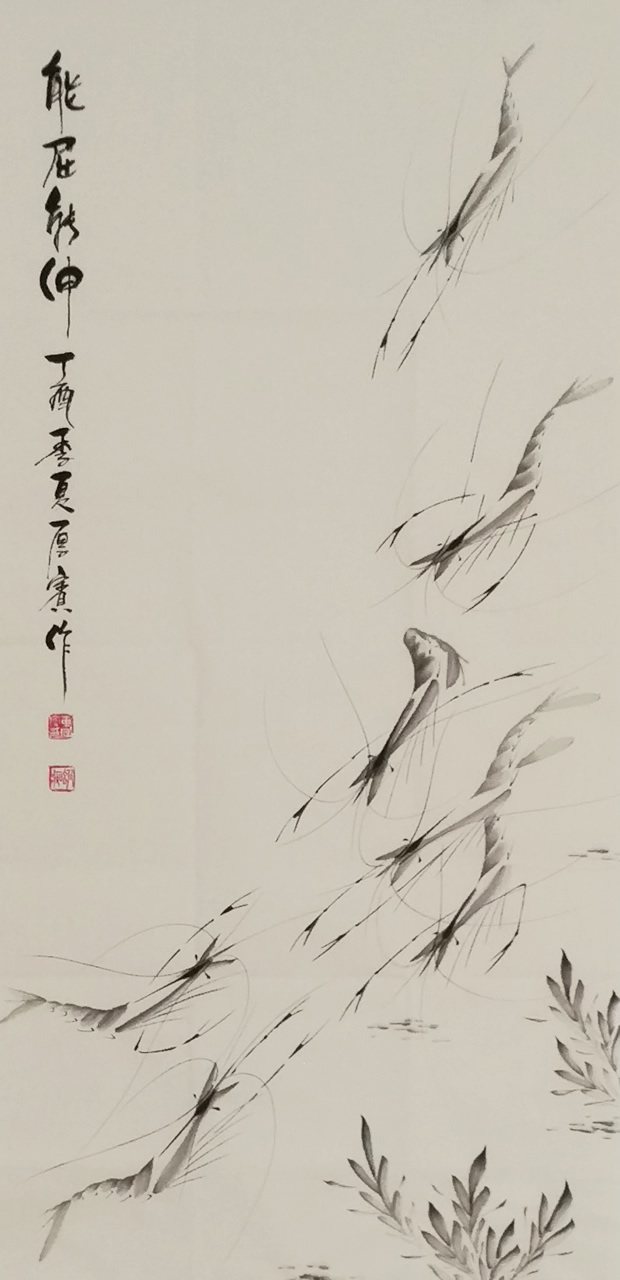 能屈能伸
丁酉季夏厚賓作